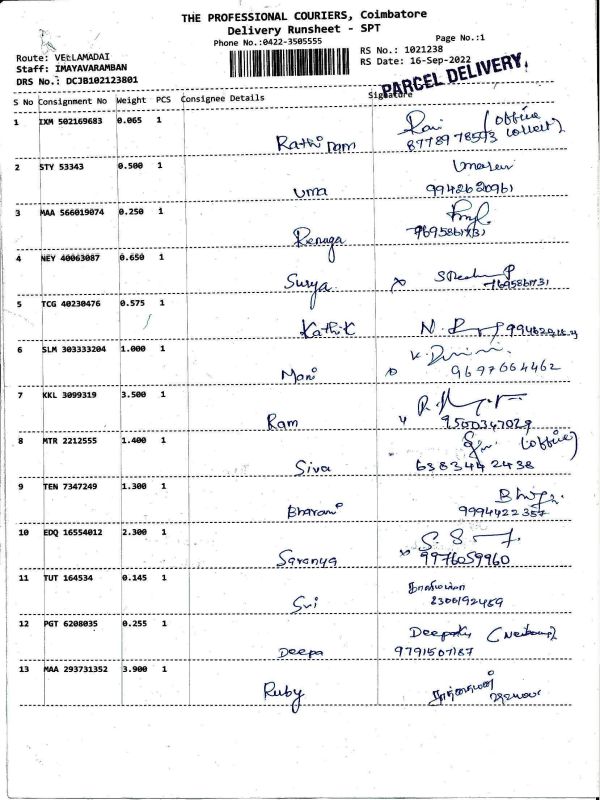 THE PROFESSIONAL COURIERS, Coimbatore
Delivery Runsheet - SPT
Phone No.:0422-3505555
Page No.:1
Route: VELLAMADAI
RS No.: 1021238
Staff: IMAYAVARAMBAN
RS Date: 16-Sep-2022
DRS No.: DCJB102123801
PARCEL DELIVERY.
S No Consignment No Weight PCS Consignee Details Signature
1 IXM 502169683 0.065 1 Rathinam (office collect)
8778978593
2 STY 53343 0.500 1 Uma
9942620961
3 MAA 566019074 0.250 1 Renuga
4 NEY 40063087 0.650 1 Surya
5 TCG 40230476 0.575 1 Kathik
6 SLM 303333204 1.000 1 Mani
9697664462
7 KKL 3099319 3.500 1 Ram
9500347029
8 MTR 2212555 1.400 1 Siva (office)
6383442438
9 TEN 7347249 1.300 1 Bharani
9994422357
10 EDQ 16554012 2.300 1 Saranya
9976059960
11 TUT 164534 0.145 1 Sri
12 PGT 6208035 0.255 1 Deepa
9791507187
13 MAA 293731352 3.900 1 Ruby